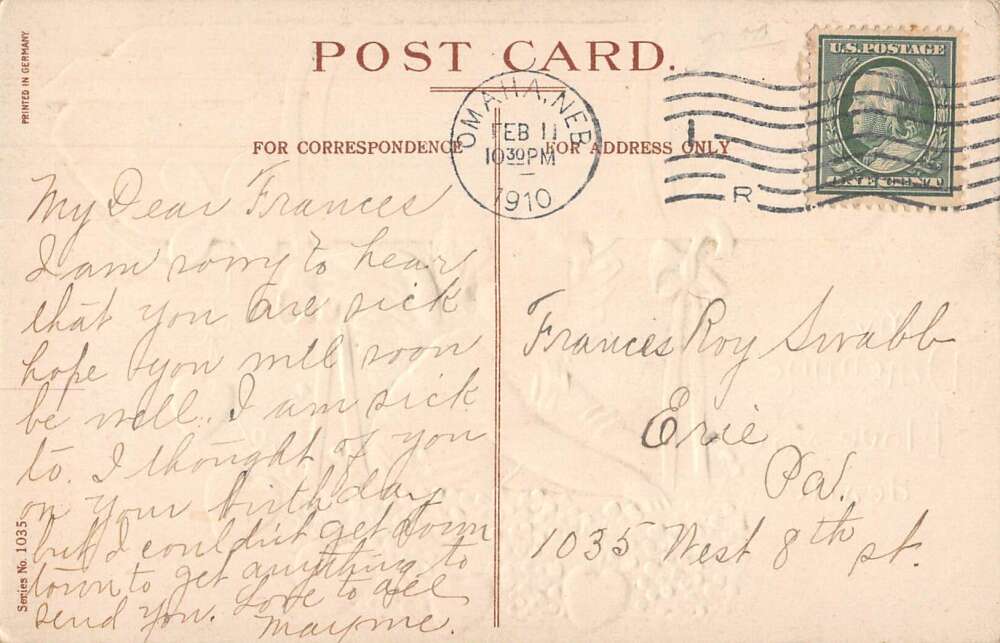 PRINTED IN GERMANY
POST CARD.
U.S. POSTAGE
OMAHA, NEB
FEB 11
10 30 PM
1910
L
R
FOR CORRESPONDENCE
FOR ADDRESS ONLY
My Dear Frances
I am sorry to hear
that you are sick
hope you will soon
be well. I am sick
to. I thought of you
on your birthday
but I couldn't get down
town to get anything to
send you. Love to all
Mayme.
Series No. 1035
Frances Roy Swabb
Erie
Pa.
1035 West 8th st.